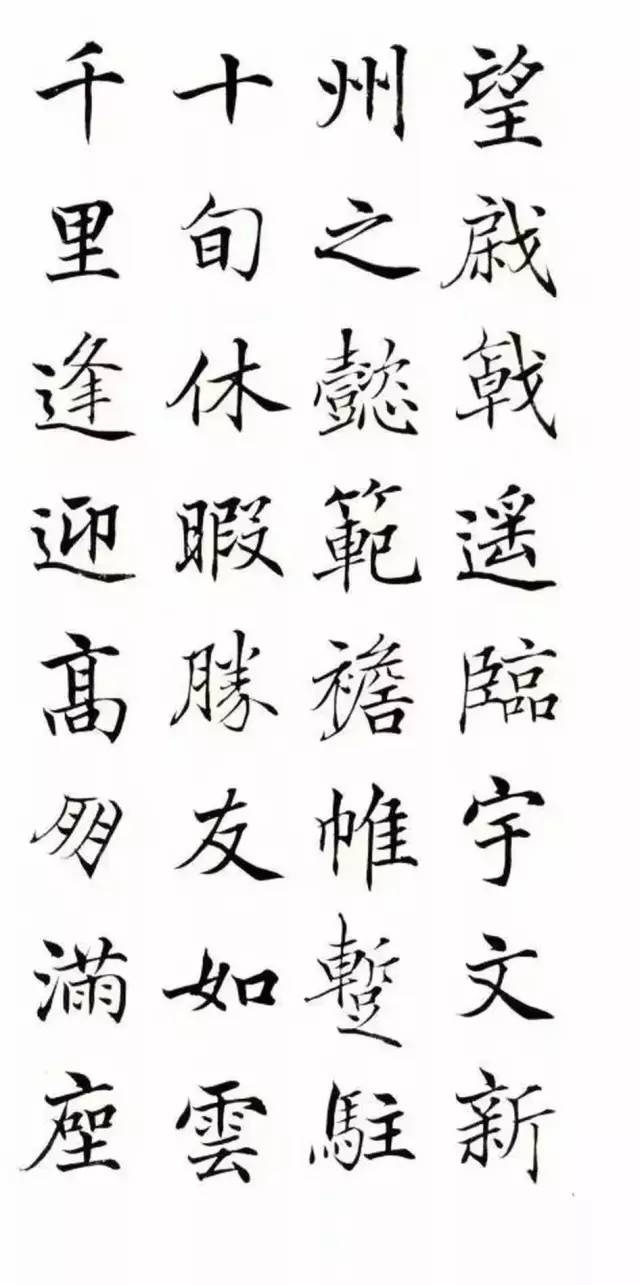 望戚戟遥臨宇文新
州之懿範襜帷蹔駐
十旬休暇勝友如雲
千里逢迎髙朋滿座